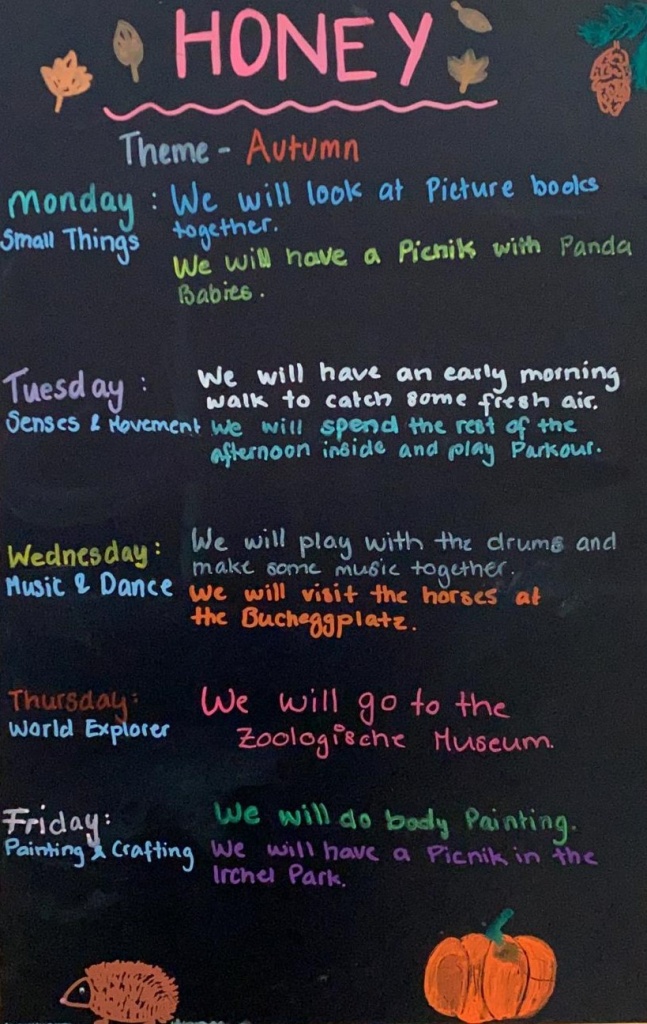 HONEY
Theme - Autumn
Monday : We will look at Picture books
Small Things together.
We will have a Picnik with Panda
Babies.
Tuesday : We will have an early morning
walk to catch some fresh air.
Senses & Movement We will spend the rest of the
afternoon inside and play Parkour.
Wednesday : We will play with the drums and
make some music together.
Music & Dance We will visit the horses at
the Bucheggplatz.
Thursday : We will go to the
World Explorer Zoologische Museum.
Friday : We will do body Painting.
Painting & Crafting We will have a Picnik in the
Irchel Park.